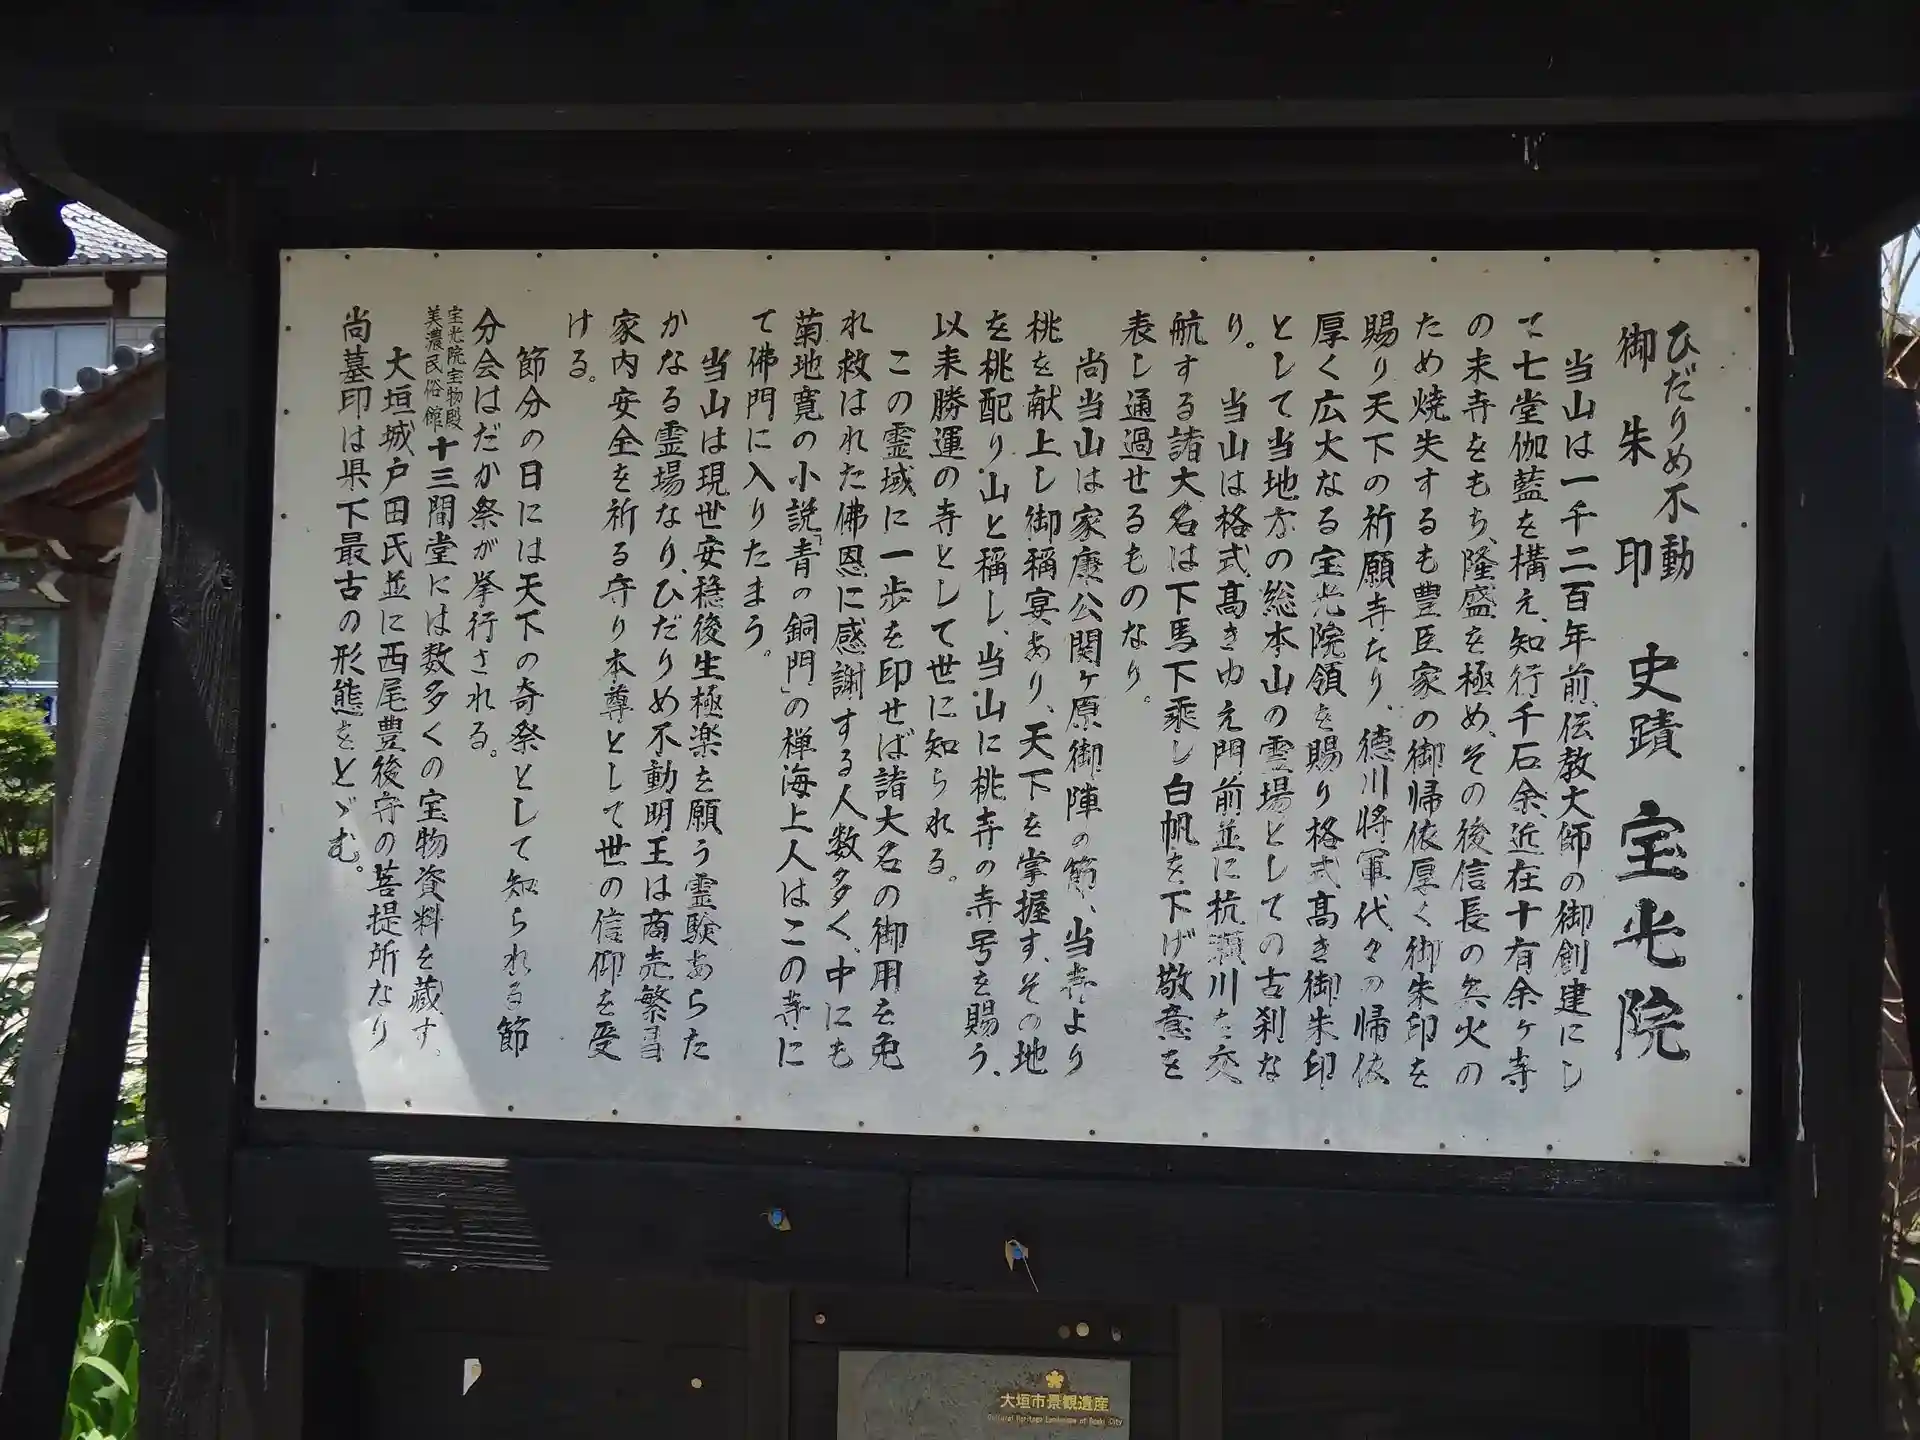 ひだりめ不動
御朱印 史蹟 宝光院
当山は一千二百年前、伝教大師の御創建にし
て七堂伽藍を構え、知行千石余、近在十有余ヶ寺
の末寺をもち、隆盛を極め、その後信長の兵火の
ため焼失するも豊臣家の御帰依厚く御朱印を
賜り天下の祈願寺たり、徳川将軍代々の帰依
厚く広大なる宝光院領を賜り格式高き御朱印
として当地方の総本山の霊場としての古刹な
り。 当山は格式高きゆえ門前並に杭瀬川を交
航する諸大名は下馬下乗し白帆を下げ敬意を
表し通過せるものなり。
尚当山は家康公関ヶ原御陣の節、当寺より
桃を献上し御稱宴あり、天下を掌握す、その地
を桃配り山と稱し、当山に桃寺の寺号を賜う、
以来勝運の寺として世に知られる。
この霊域に一歩を印せば諸大名の御用を免
れ救はれた佛恩に感謝する人数多く、中にも
菊地寛の小説「青の銅門」の禅海上人はこの寺に
て佛門に入りたまう。
当山は現世安穏後生極楽を願う霊験あらた
かなる霊場なり、ひだりめ不動明王は商売繁昌
家内安全を祈る守り本尊として世の信仰を受
ける。
節分の日には天下の奇祭として知られる節
分会はだか祭が挙行される。
宝光院宝物殿
美濃民俗館
十三間堂には数多くの宝物資料を蔵す、
大垣城戸田氏並に西尾豊後守の菩提所なり
尚墓印は県下最古の形態をとゞむ。
大垣市景観遺産
Cultural Heritage Landscape of Ogaki City